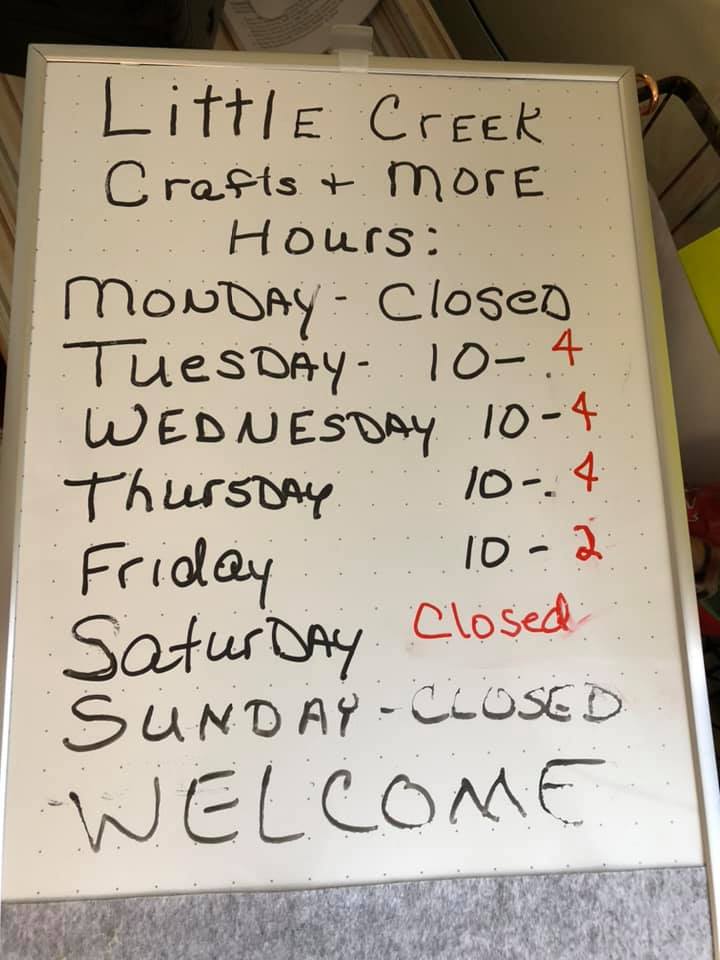 LittlE CrEEK
Crafts + MorE
Hours:
MONDAY - Closed
TuesDAY - 10 - 4
WEDNESDAY 10 - 4
ThursDAY 10 - 4
Friday 10 - 2
SaturDAY Closed
SUNDAY - CLOSED
WELCOME